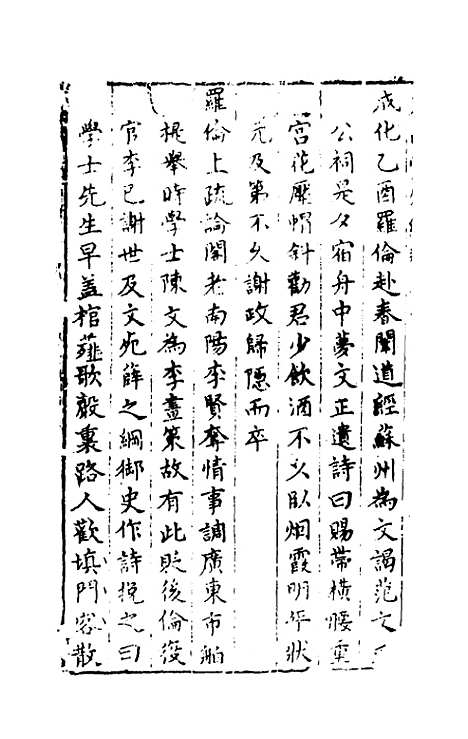 成化乙酉羅倫赴春闈道經蘇州為文謁范文
公祠是夕宿舟中夢文正遺詩曰賜帶橫腰重
宫花壓帽斜勸君少飲酒不久臥烟霞明年狀
元及第不久謝政歸隱而卒
羅倫上疏論閣老南陽李賢奪情事調廣東市舶
提舉時學士陳文為李畫策故有此貶後倫復
官李已謝世及文死薛之綱御史作詩挽之曰
學士先生早盖棺薤歌聲裏路人歡填門客散